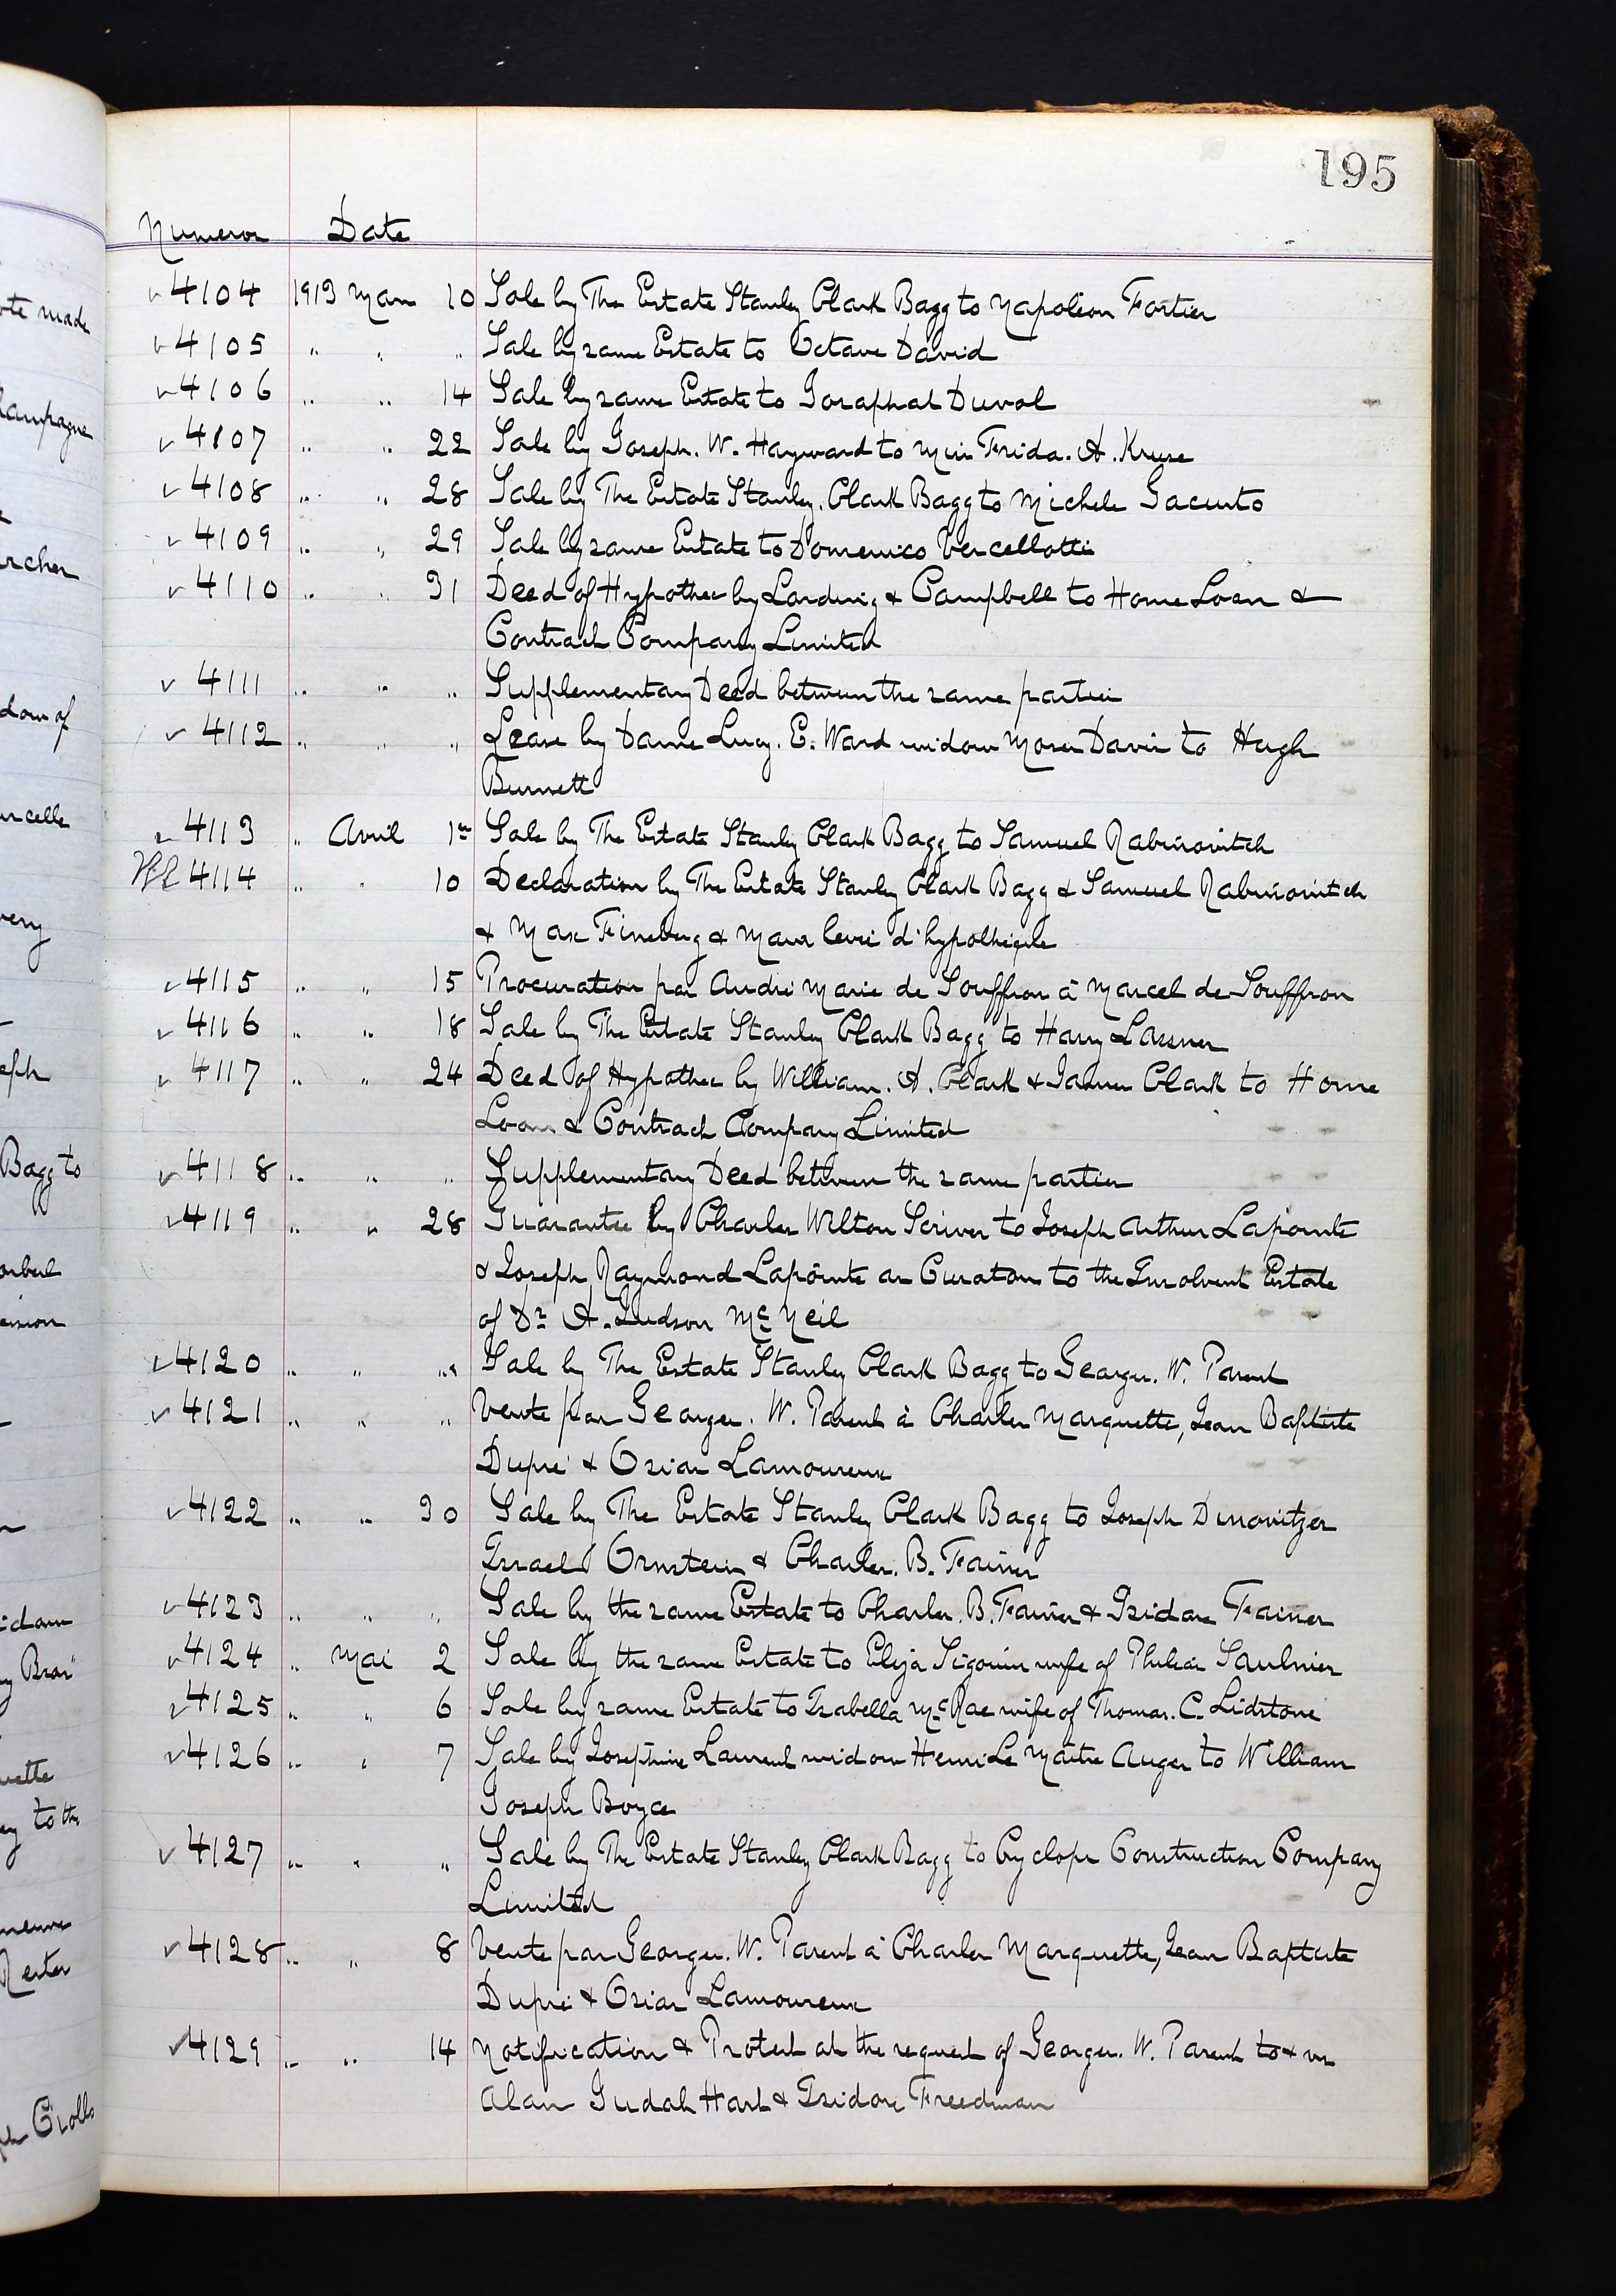 195
Numeros Date
4104 1913 Mars 10 Sale by The Estate Stanley Clark Bagg to Napoléon Fortier
4105 " " " Sale by same Estate to Octave David
4106 " " 14 Sale by same Estate to Josaphat Duval
4107 " " 22 Sale by Joseph. W. Hayward to Miss Frida. A. Kruse
4108 " " 28 Sale by The Estate Stanley. Clark Bagg to Michele Iacurto
4109 " " 29 Sale by same Estate to Domenico Vercellotti
4110 " " 31 Deed of Hypothec by & Campbell to Home Loan &
Contract Company Limited
4111 " " " Supplementary Deed between the same parties
4112 " " " Lease by Dame Lucy. E. Ward widow Moses Davis to Hugh
Burnett
4113 " Avril 1er Sale by The Estate Stanley Clark Bagg to Samuel Rabinovitch
4114 " " 10 Declaration by The Estate Stanley Clark Bagg & Samuel Rabinovitch
& Max Fineberg & d'hypothèque
4115 " " 15 Procuration par André Marie de Souffron à Marcel de Souffron
4116 " " 18 Sale by The Estate Stanley Clark Bagg to Harry Lassner
4117 " " 24 Deed of Hypothec by William. A. Clark & James Clark to Home
Loan & Contract Company Limited
4118 " " " Supplementary Deed between the same parties
4119 " " 28 Guarantee by Charles Wilton Scriver to Joseph Arthur Lapointe
& Joseph Raymond Lapointe as Curators to the Insolvent Estate
of Dr A. Judson McNeil
4120 " " " Sale by The Estate Stanley Clark Bagg to Georges. W. Parent
4121 " " " Vente par Georges. W. Parent à Charles Marquette, Jean Baptiste
Dupré & Ozias Lamoureux
4122 " " 30 Sale by The Estate Stanley Clark Bagg to Joseph Dinovitzer
Israel Ornstein & Charles. B. Fainer
4123 " " " Sale by the same Estate to Charles. B. Fainer & Isidore Fainer
4124 " Mai 2 Sale by the same Estate to Eliza Sigouin wife of Philéas Saulnier
4125 " " 6 Sale by same Estate to Isabella McRae wife of Thomas. C. Lidstone
4126 " " 7 Sale by Josephine Laurent widow Henri Le Maitre Auger to William
Joseph Boyce
4127 " " " Sale by The Estate Stanley Clark Bagg to Cyclops Construction Company
Limited
4128 " " 8 Vente par Georges. W. Parent à Charles Marquette, Jean Baptiste
Dupré & Ozias Lamoureux
4129 " " 14 Notification & Protest at the request of Georges. W. Parent to & vs
Alan Judah Hart & Isidore Freedman